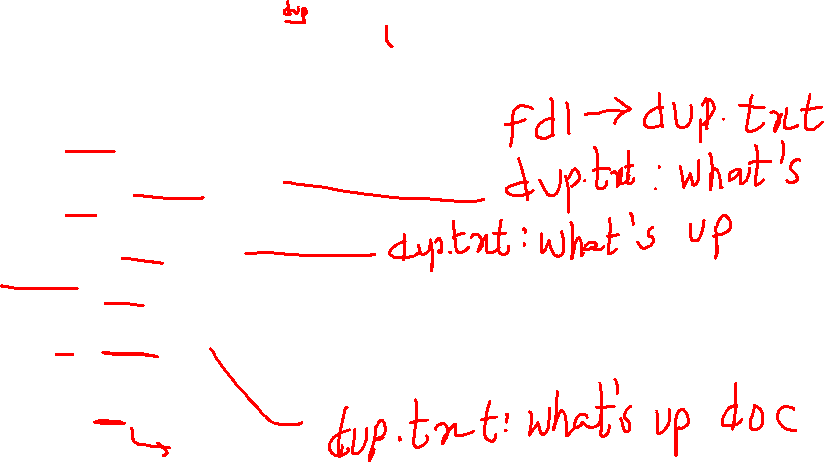 dup
fd1 → dup.txt
dup.txt: what's
dup.txt: what's up
dup.txt: what's up doc